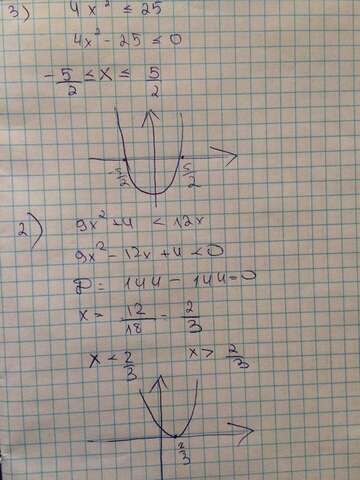 3) 4x² ≤ 25
4x² - 25 ≤ 0
-5/2 ≤ x ≤ 5/2
-5/2 5/2
2) 9x² + 4 < 12x
9x² - 12x + 4 < 0
D = 144 - 144 = 0
x = 12/18 = 2/3
x < 2/3 x > 2/3
2/3